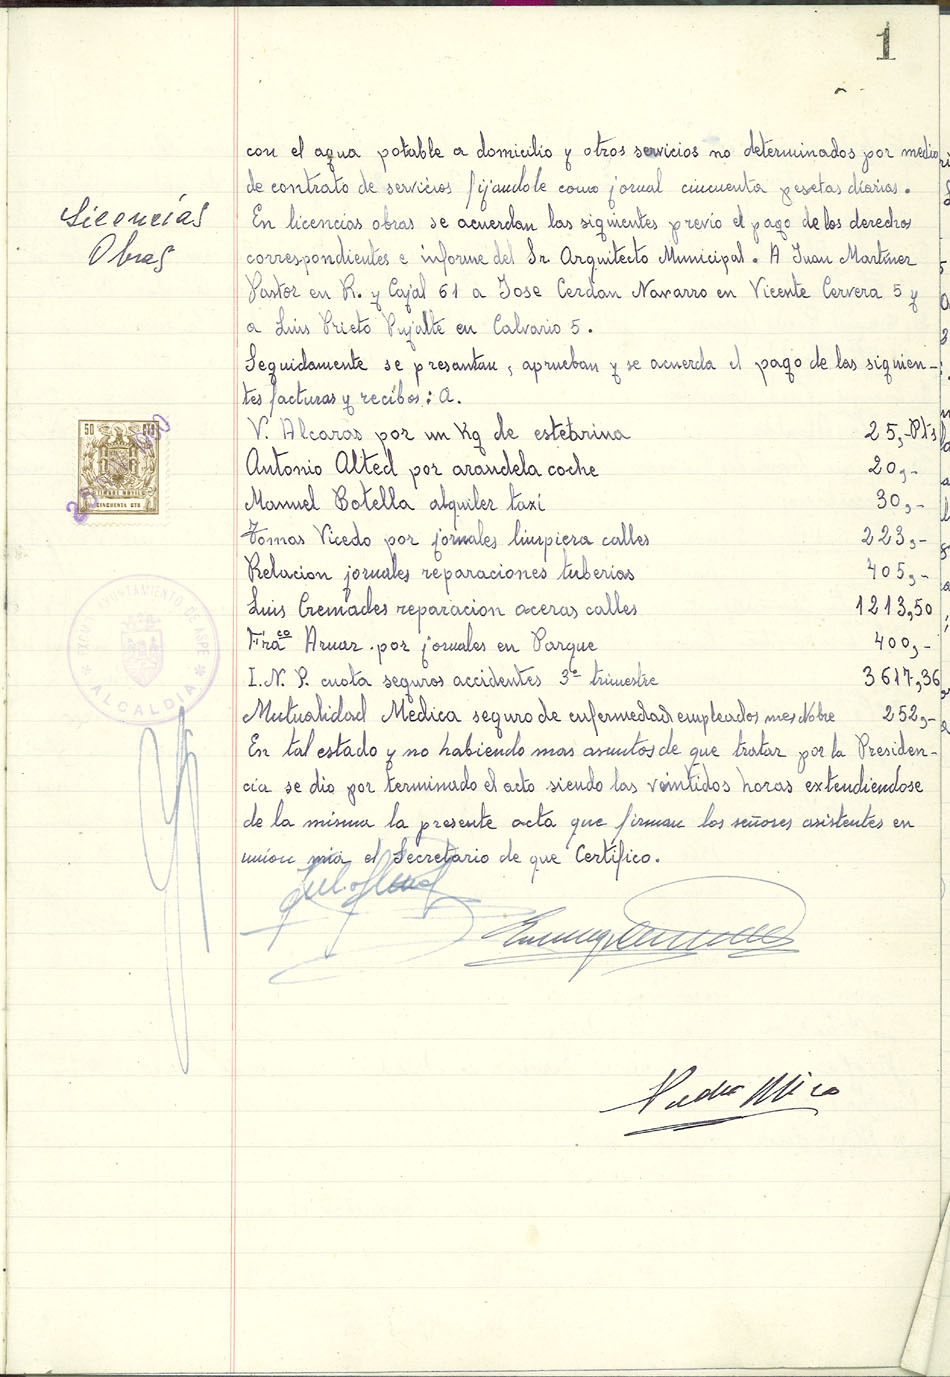 1
con el agua potable a domicilio y otros servicios no determinados por medio
de contrato de servicios fijandole como jornal cincuenta pesetas diarias.
Licencias
Obras
En licencias obras se acuerdan las siguientes previo el pago de los derechos
correspondientes e informe del Sr Arquitecto Municipal. A Juan Martinez
Pastor en R. y Cajal 61 a Jose Cerdan Navarro en Vicente Cervera 5 y
a Luis Prieto Pujalte en Calvario 5.
Seguidamente se presantan, aprueban y se acuerda el pago de las siguien-
tes facturas y recibos: A.
V. Alcaras por un Kg de estebrina 25,- Pts
Antonio Alted por arandela coche 20,-
Manuel Botella alquiler taxi 30,-
Tomas Vicedo por jornales limpiera calles 223,-
Relacion jornales reparaciones tuberias 405,-
Luis Cremades reparacion aceras calles 1213,50
Fraco Aznar por jornales en Parque 400,-
I.N.P. cuota seguros accidentes 3er trimestre 3617,36
Mutualidad Medica seguro de enfermedad empleados mes Nobre 252,-
En tal estado y no habiendo mas asuntos de que tratar por la Presiden-
cia se dio por terminado el acto siendo las veintidos horas extendiendose
de la misma la presente acta que firman los señores asistentes en
union mia el Secretario de que Certifico.
50 CTS
TIMBRE MOVIL
CINCUENTA CTS
AYUNTAMIENTO DE ASPE
* ALCALDIA *